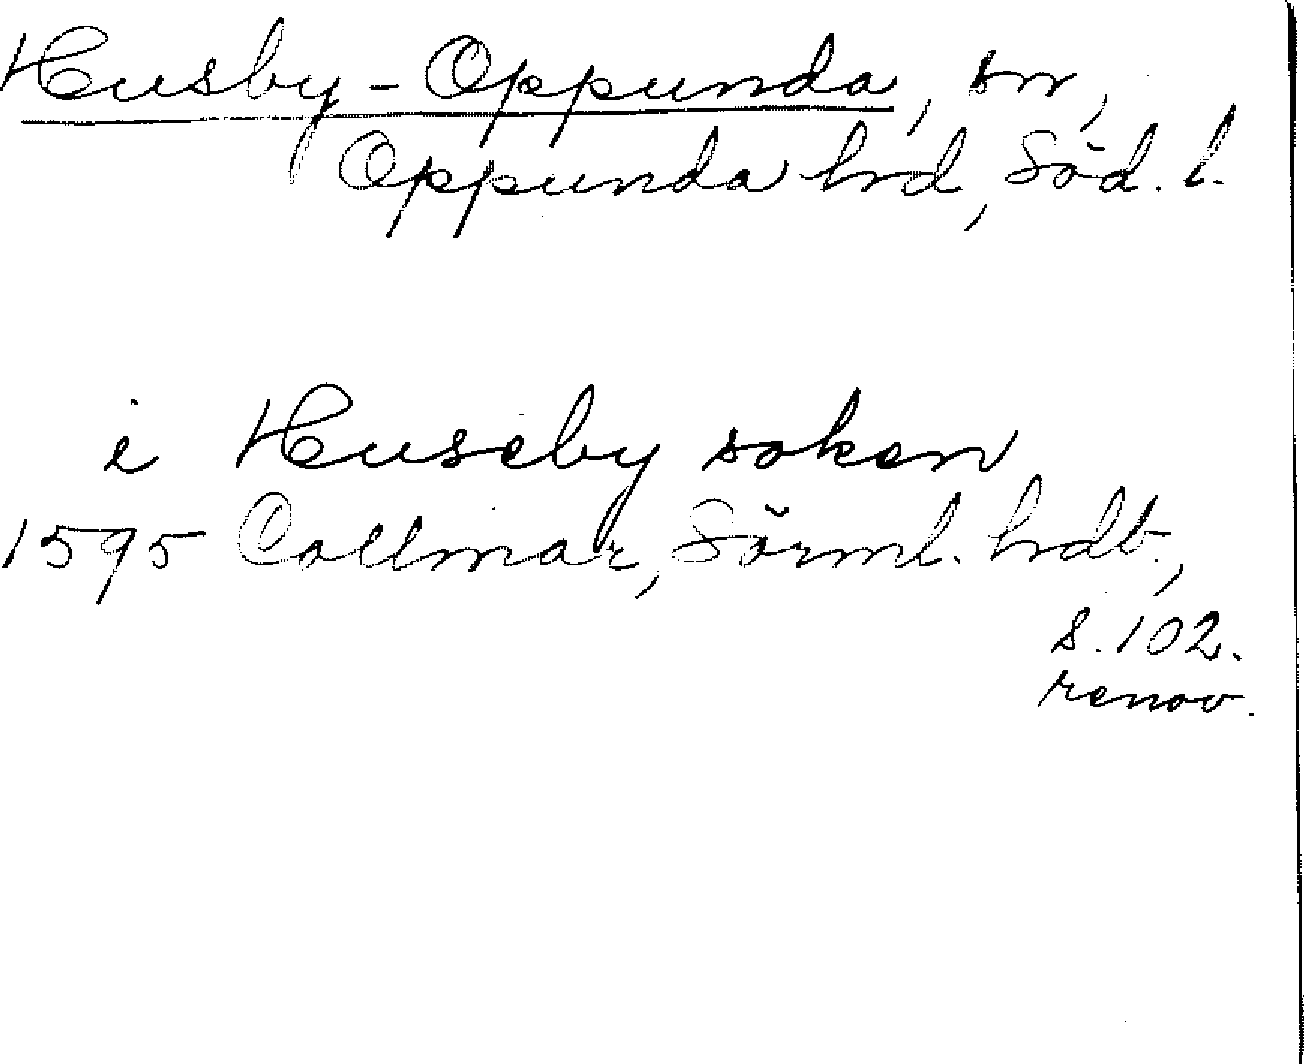 Husby-Oppunda, sn,
Oppunda hrd, Söd. l.
i Huseby soken
1595 Collmar, Sörml. hrdb.,
s. 102.
renov.